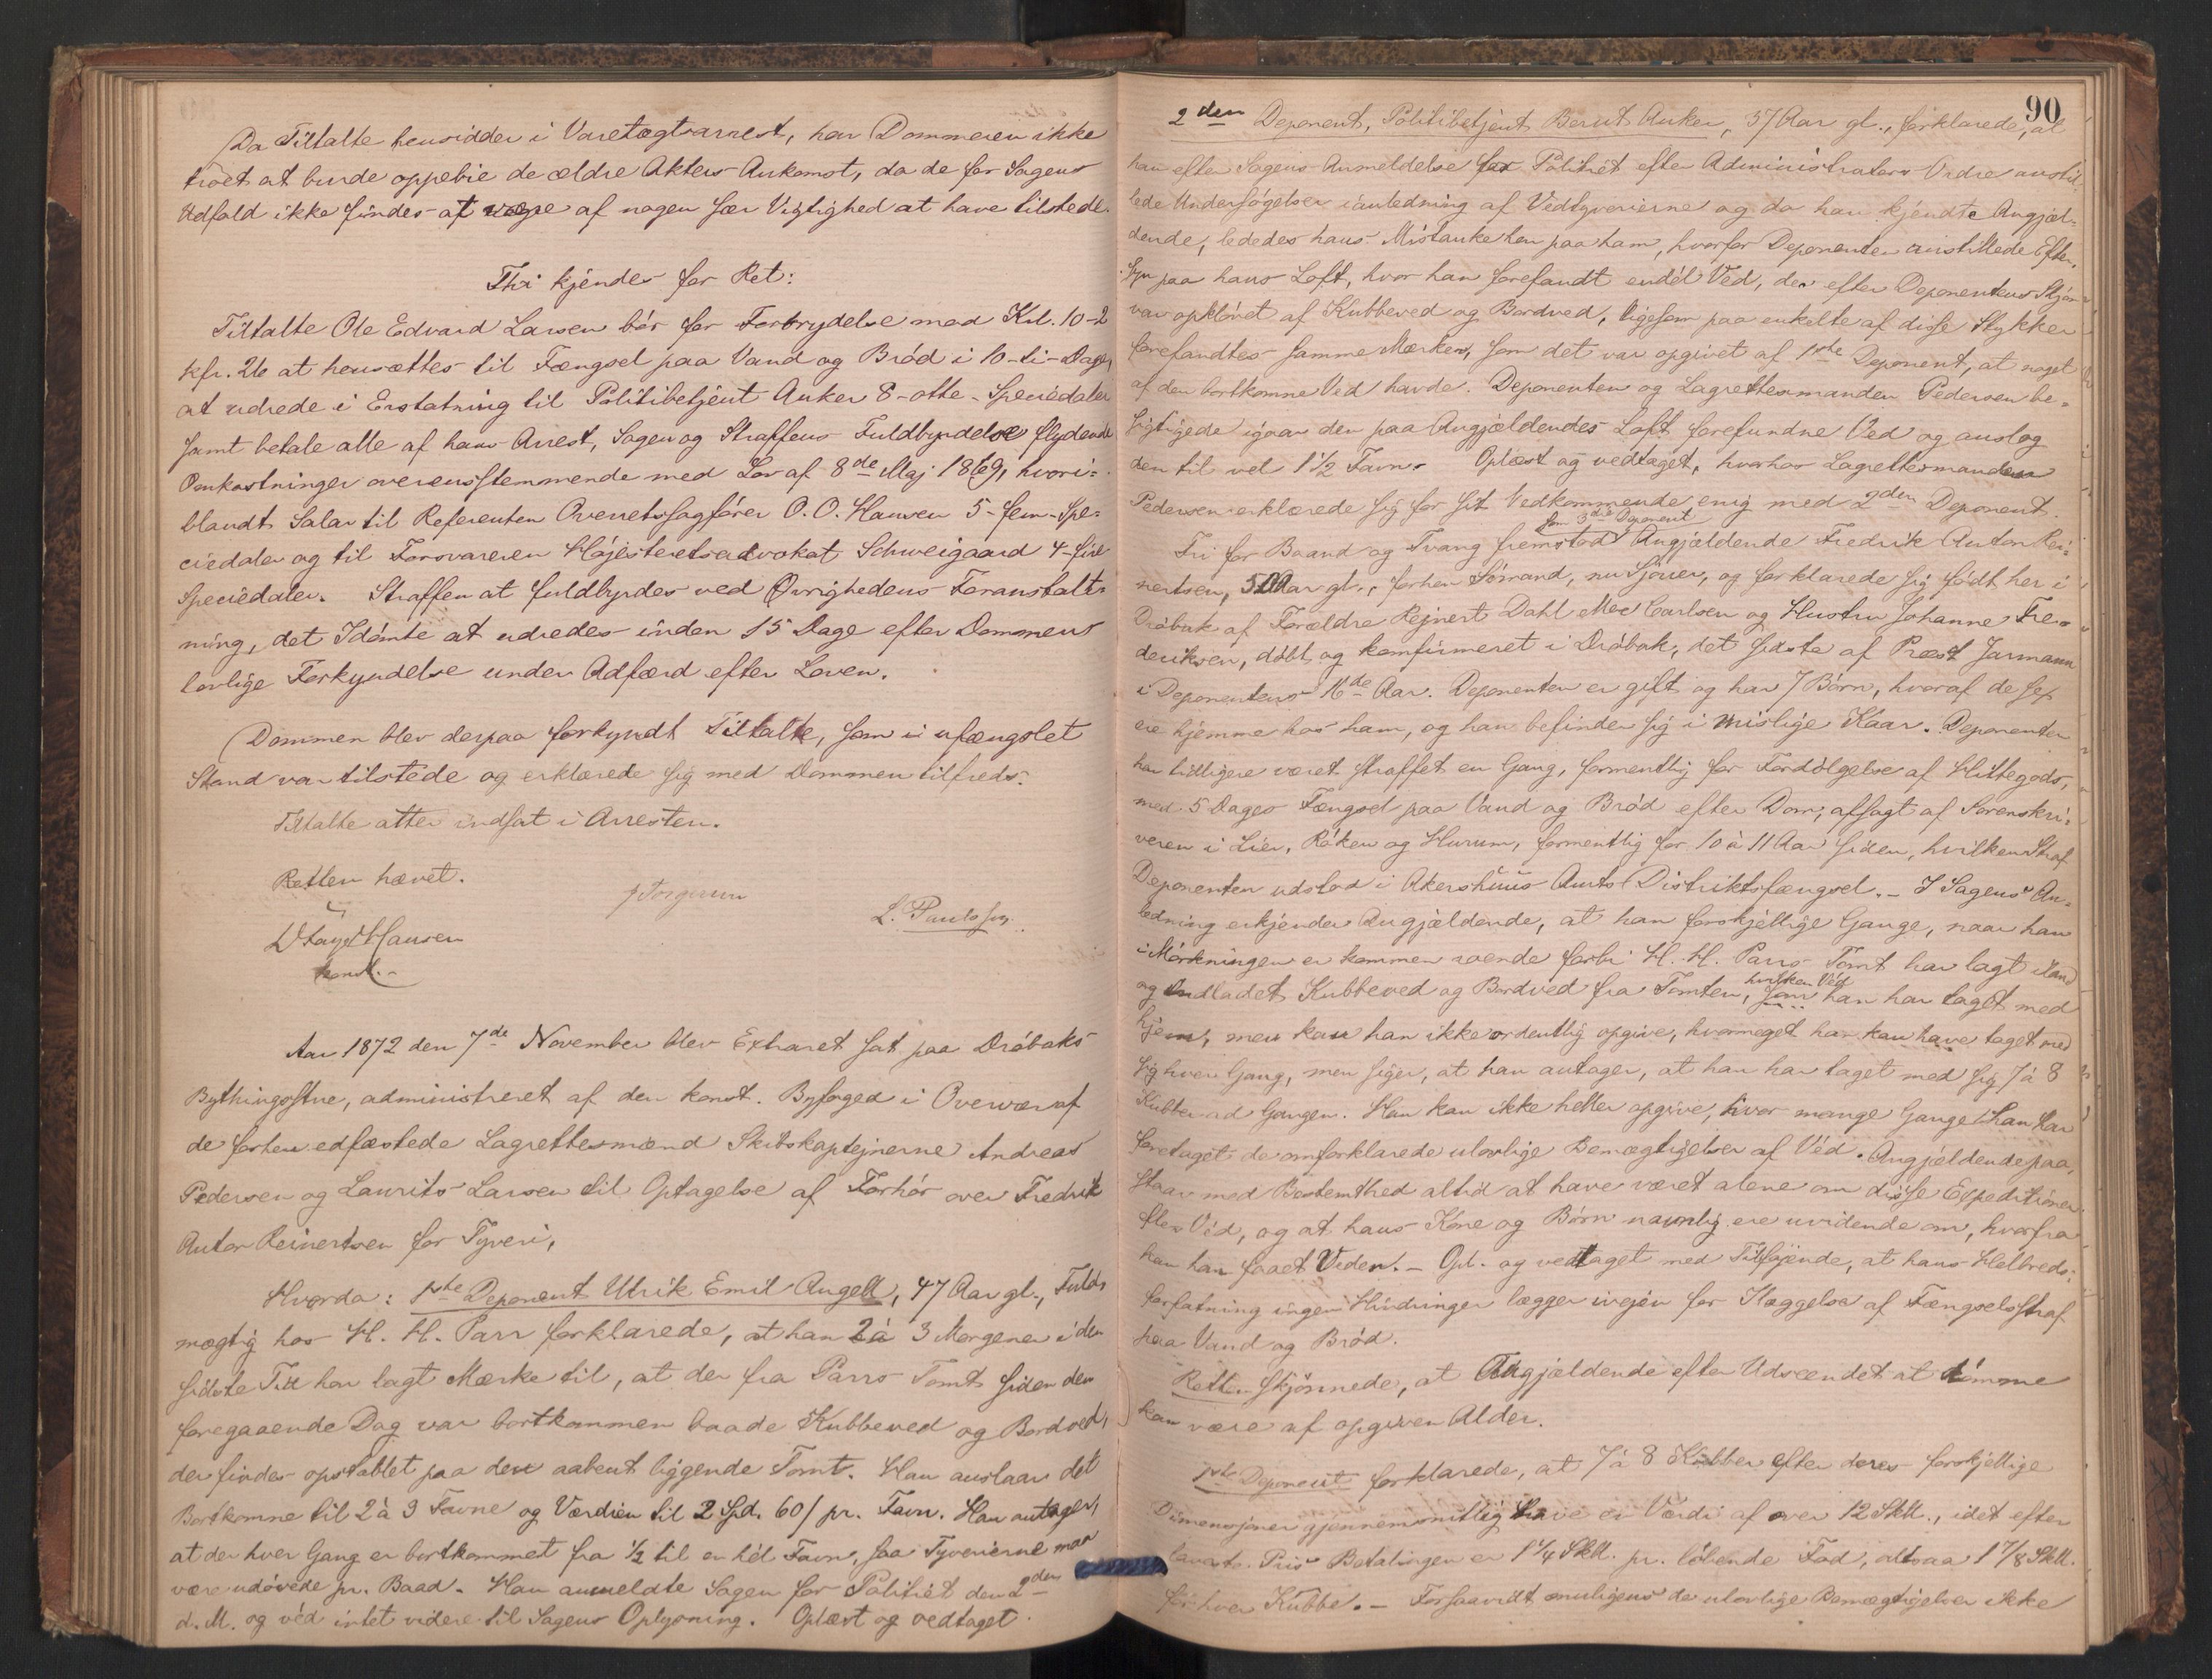 Da Tiltalte hensidder i Varetægtsarrest, har Dommeren ikke
troet at burde oppebie de ældre Akters Ankomst, da de for Sagens
Udfald ikke findes at være af nogen sær Vigtighed at have tilstede.
Thi kjendes for Ret:
Tiltalte Ole Edvard Larsen bör for Forbrydelse mod Krl. 10-2
kfr. 26 at hensættes til Fængsel paa Vand og Bröd i 10-ti-Dage,
at udrede i Erstatning til Politibetjent Anker 8-otte-Speciedaler
samt betale alle af hans Arrest, Sagen og Straffens Fuldbyrdelse flydende
Omkostninger overensstemmende med Lov af 8de Maj 1869, hvori-
blandt Salar til Referenten Overretssagförer O. O. Hansen 5-fem-Spe-
ciedaler og til Forsvareren Höjesteretsadvokat Schweigaard 4-fire
Speciedaler. Straffen at fuldbyrdes ved Övrighedens Foranstalt-
ning, det Idömte at udredes inden 15 Dage efter Dommens
lovlige Forkyndelse under Adfærd efter Loven.
Dommen blev derpaa forkyndt Tiltalte, som i ufængslet
Stand var tilstede og erklærede sig med Dommen tilfreds.
Tiltalte atter indsat i Arresten.
Retten hævet.
Hansen
L. Paulssen
konst.
Aar 1872 den 7de November blev Extraret sat paa Dröbaks
Bythingsstue, administreret af den konst. Byfoged i Overvær af
de forhen edfæstede Lagrettesmænd Skibskaptejnerne Andreas
Pedersen og Laurits Larsen til Optagelse af Forhör over Fredrik
Anton Reinertsen for Tyveri,
Hvorda: 1ste Deponent Ulrik Emil Angell, 47 Aar gl., Fuld-
mægtig hos H. H. Parr forklarede, at han 2 à 3 Morgener i den
sidste Tid har lagt Mærke til, at der fra Parrs Tomt siden den
foregaaende Dag var bortkommen baade Kubbeved og Bordved,
der findes opstablet paa den aabent liggende Tomt. Han anslaar det
Bortkomne til 2 à 3 Favne og Værdien til 2 Spd. 60 ſ pr. Favn. Han antager,
at der hver Gang er bortkommet fra ½ til en hél Favn, saa Tyverierne maa
være udövede pr. Baad. Han anmeldte Sagen for Politiet den 2den
d. M. og véd intet videre til Sagens Oplysning. Oplæst og vedtaget.
90
2den Deponent, Politibetjent Bernt Anker, 37 Aar gl., forklarede, at
han efter Sagens Anmeldelse for Politiet efter Administrators Ordre anstil-
lede Undersögelser i anledning af Vedtyverierne og da han kjendte Angjæl-
dende, lededes hans Mistanke hen paa ham, hvorfor Deponenten anstillede Efter-
syn paa hans Loft, hvor han forefandt endél Ved, der efter Deponentens Skjön
var oplövet af Kubbeved og Bordved, ligesom paa enkelte af disse Stykker
forefandtes samme Mærker, som det var opgivet af 1ste Deponent, at noget
af den bortkomne Ved havde. Deponenten og Lagrettesmanden Pedersen be-
sigtigede igaar den paa Angjældendes Loft forefundne Ved og anslog
den til vel 1½ Favn. Oplæst og vedtaget, hvorhos Lagrettesmanden
Pedersen erklærede sig for sit Vedkommende enig med 2den Deponent.
som 3die Deponent
Fri for Baand og Tvang fremstod Angjældende Fredrik Anton Rei-
nertsen, 50 Aar gl., forhen Sömand, nu Sjöuer, og forklarede sig födt her i
Dröbak af Forældre Rejnert Dahl Carlsen og Hustru Johanne Fre-
deriksen, döbt og konfirmeret i Dröbak, det sidste af Præst Jarmann
i Deponentens 16de Aar. Deponenten er gift og har 7 Börn, hvoraf de sex
ere hjemme hos ham, og han befinder sig i mislige Kaar. Deponenten
har tidligere været straffet en Gang, formentlig for Fordölgelse af Hittegods,
med 5 Dages Fængsel paa Vand og Bröd efter Dom, afsagt af Sorenskri-
veren i Lier, Röken og Hurum, formentlig for 10 à 11 Aar siden, hvilken Straf
Deponenten udstod i Akershuus Amts Distriktsfængsel. - I Sagens An-
ledning erkjender Angjældende, at han forskjellige Gange, naar han
i Mörkningen er kommen roende forbi H. H. Parrs Tomt har lagt iland
hvilken Véd
og indladet Kubbeved og Bordved fra Tomten, som han har taget med
hjem, men kan han ikke ordentlig opgive, hvormeget han kan have taget med
sig hver Gang, men siger, at han antager, at han har taget med sig 7 à 8
Kubber ad Gangen. Han kan ikke heller opgive, hvor mange Gange han har
foretaget de omforklarede ulovlige Bemægtigelser af Véd. Angjældende paa-
staar med Bestemthed altid at have været alene om disse Expeditioner
efter Véd, og at hans Kone og Börn navnlig ere uvidende om, hvorfra
han har faaet Veden. - Opl. og vedtaget med Tilföjende, at hans Helbreds-
forfatning ingen Hindringer lægger ivejen for Ilæggelse af Fængselsstraf
paa Vand og Bröd.
Retten skjönnede, at Angjældende efter Udseendet at dömme
kan være af opgiven Alder.
1ste Deponent forklarede, at 7 à 8 Kubber efter deres forskjellige
Dimensjoner gjennemsnitlig have en Værdi af over 12 Skll., idet efter
laveste Pris Betalingen er 1¼ Skll. pr. löbende Fod, altsaa 1⅞ Skll.
for hver Kubbe. - Forsaavidt muligens de ulovlige Bemægtigelser ikke